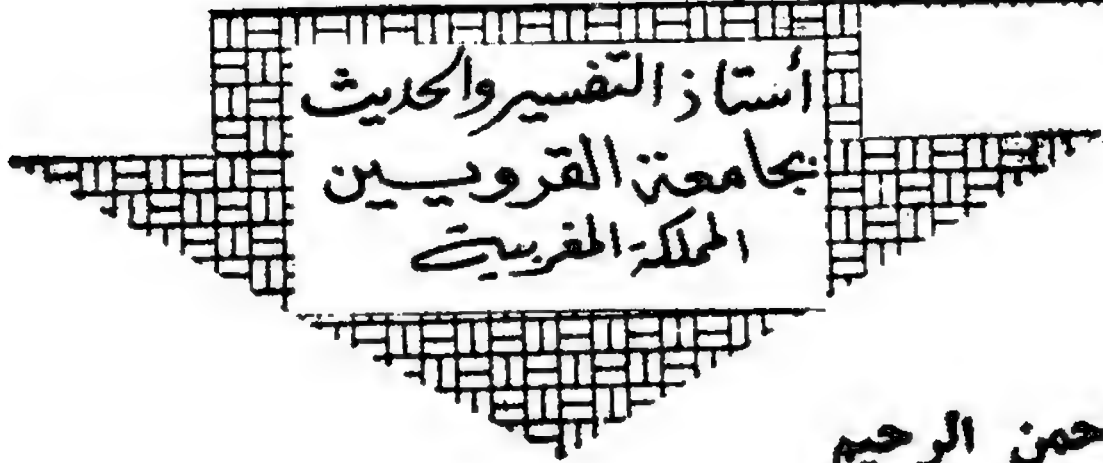 أستاذ التفسير والحديث
بجامعة القرويين
المملكة المغربية
حمن الرحيم